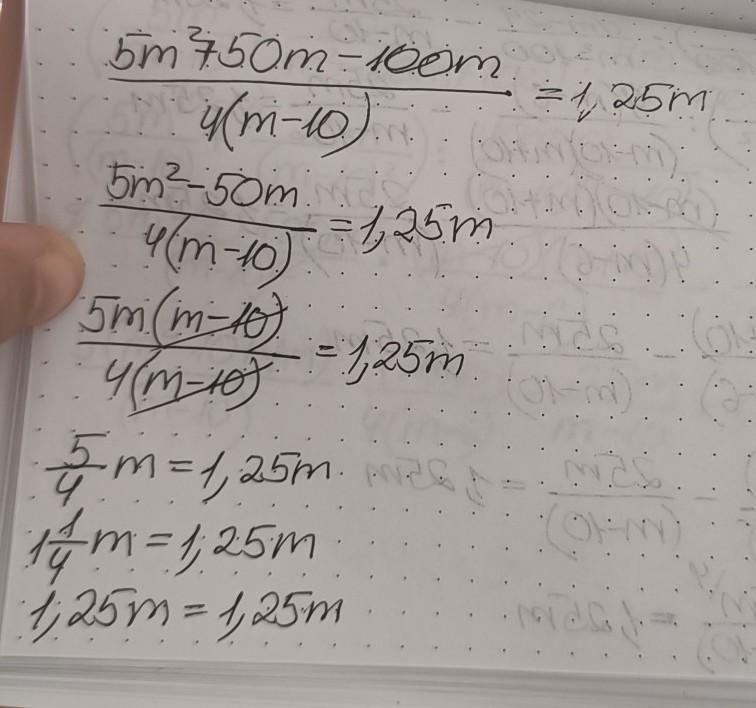 5m²+50m-100m/4(m-10) = 1,25m
5m²-50m/4(m-10) = 1,25m
5m(m-10)/4(m-10) = 1,25m
5/4 m = 1,25m
1 1/4 m = 1,25m
1,25m = 1,25m